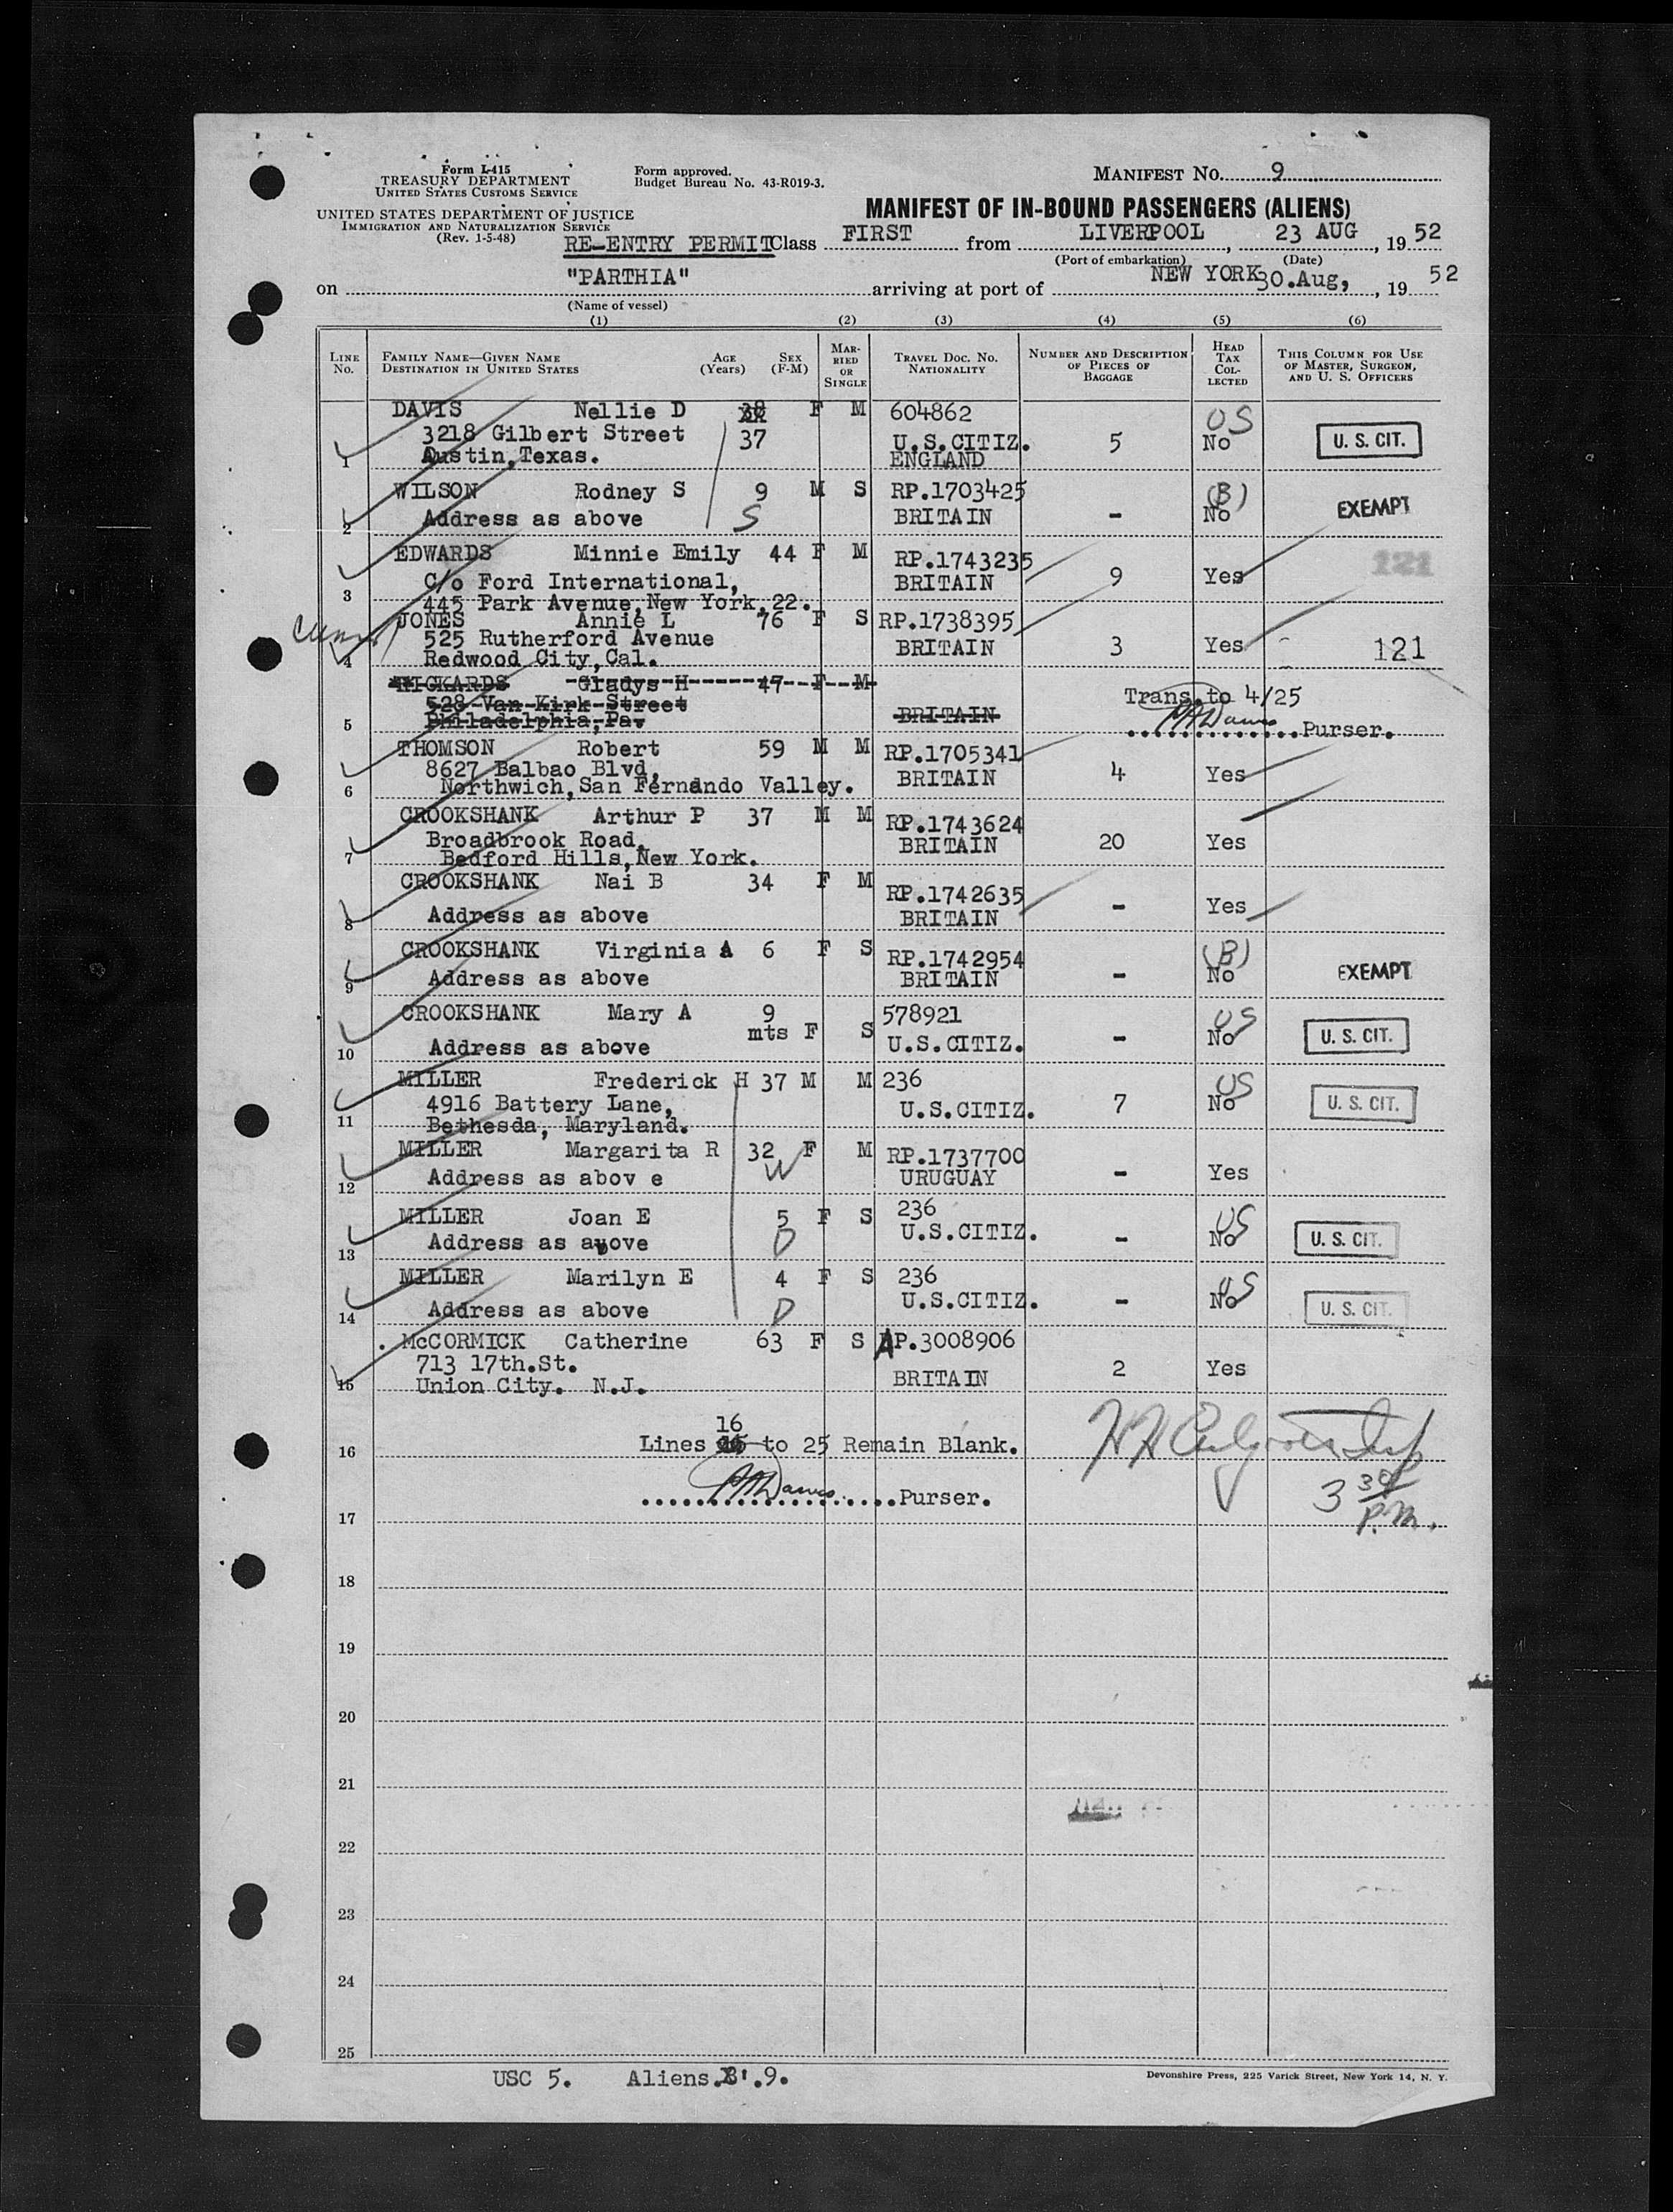 Form I-415
TREASURY DEPARTMENT
UNITED STATES CUSTOMS SERVICE
UNITED STATES DEPARTMENT OF JUSTICE
IMMIGRATION AND NATURALIZATION SERVICE
(Rev. 1-5-48)
Form approved.
Budget Bureau No. 43-R019-3.
MANIFEST No. 9
MANIFEST OF IN-BOUND PASSENGERS (ALIENS)
RE-ENTRY PERMIT Class FIRST from LIVERPOOL, 23 AUG, 19 52
(Port of embarkation) (Date)
on "PARTHIA" arriving at port of NEW YORK 30.Aug, 19 52
(Name of vessel)
(1) (2) (3) (4) (5) (6)
LINE No. FAMILY NAME—GIVEN NAME DESTINATION IN UNITED STATES AGE (Years) SEX (F-M) MARRIED OR SINGLE TRAVEL DOC. NO. NATIONALITY NUMBER AND DESCRIPTION OF PIECES OF BAGGAGE HEAD TAX COLLECTED THIS COLUMN FOR USE OF MASTER, SURGEON, AND U. S. OFFICERS
DAVIS Nellie D 38 F M 604862 US
3218 Gilbert Street 37 U.S.CITIZ. 5 No U. S. CIT.
1 Austin,Texas. ENGLAND
WILSON Rodney S 9 M S RP.1703425 (B)
2 Address as above S BRITAIN - No EXEMPT
EDWARDS Minnie Emily 44 F M RP.1743235 121
3 C/o Ford International, BRITAIN 9 Yes
445 Park Avenue,New York,22.
JONES Annie L 76 F S RP.1738395
525 Rutherford Avenue BRITAIN 3 Yes 121
4 Redwood City,Cal.
RICKARDS Gladys H 47 F M Trans.to 4/25
528 Van Kirk Street
5 Philadelphia,Pa. BRITAIN Purser.
THOMSON Robert 59 M M RP.1705341
8627 Balbao Blvd, BRITAIN 4 Yes
6 Northwich,San Fernando Valley.
CROOKSHANK Arthur P 37 M M RP.1743624
Broadbrook Road, BRITAIN 20 Yes
7 Bedford Hills,New York.
CROOKSHANK Nai B 34 F M RP.1742635
8 Address as above BRITAIN - Yes
CROOKSHANK Virginia A 6 F S RP.1742954 (B)
9 Address as above BRITAIN - No EXEMPT
CROOKSHANK Mary A 9 mts F S 578921 US
10 Address as above U.S.CITIZ. - No U. S. CIT.
MILLER Frederick H 37 M M 236 US
4916 Battery Lane, U.S.CITIZ. 7 No U. S. CIT.
11 Bethesda, Maryland.
MILLER Margarita R 32 F M RP.1737700
12 Address as abov e W URUGUAY - Yes
MILLER Joan E 5 F S 236 US
13 Address as above D U.S.CITIZ. - No U. S. CIT.
MILLER Marilyn E 4 F S 236 US
14 Address as above D U.S.CITIZ. - No U. S. CIT.
McCORMICK Catherine 63 F S AP.3008906
713 17th.St. BRITAIN 2 Yes
15 Union City. N.J.
16
16 Lines to 25 Remain Blank.
Purser. 3 30 P.M.
17
18
19
20
21
22
23
24
25
USC 5. Aliens. 9.
Devonshire Press, 225 Varick Street, New York 14, N. Y.